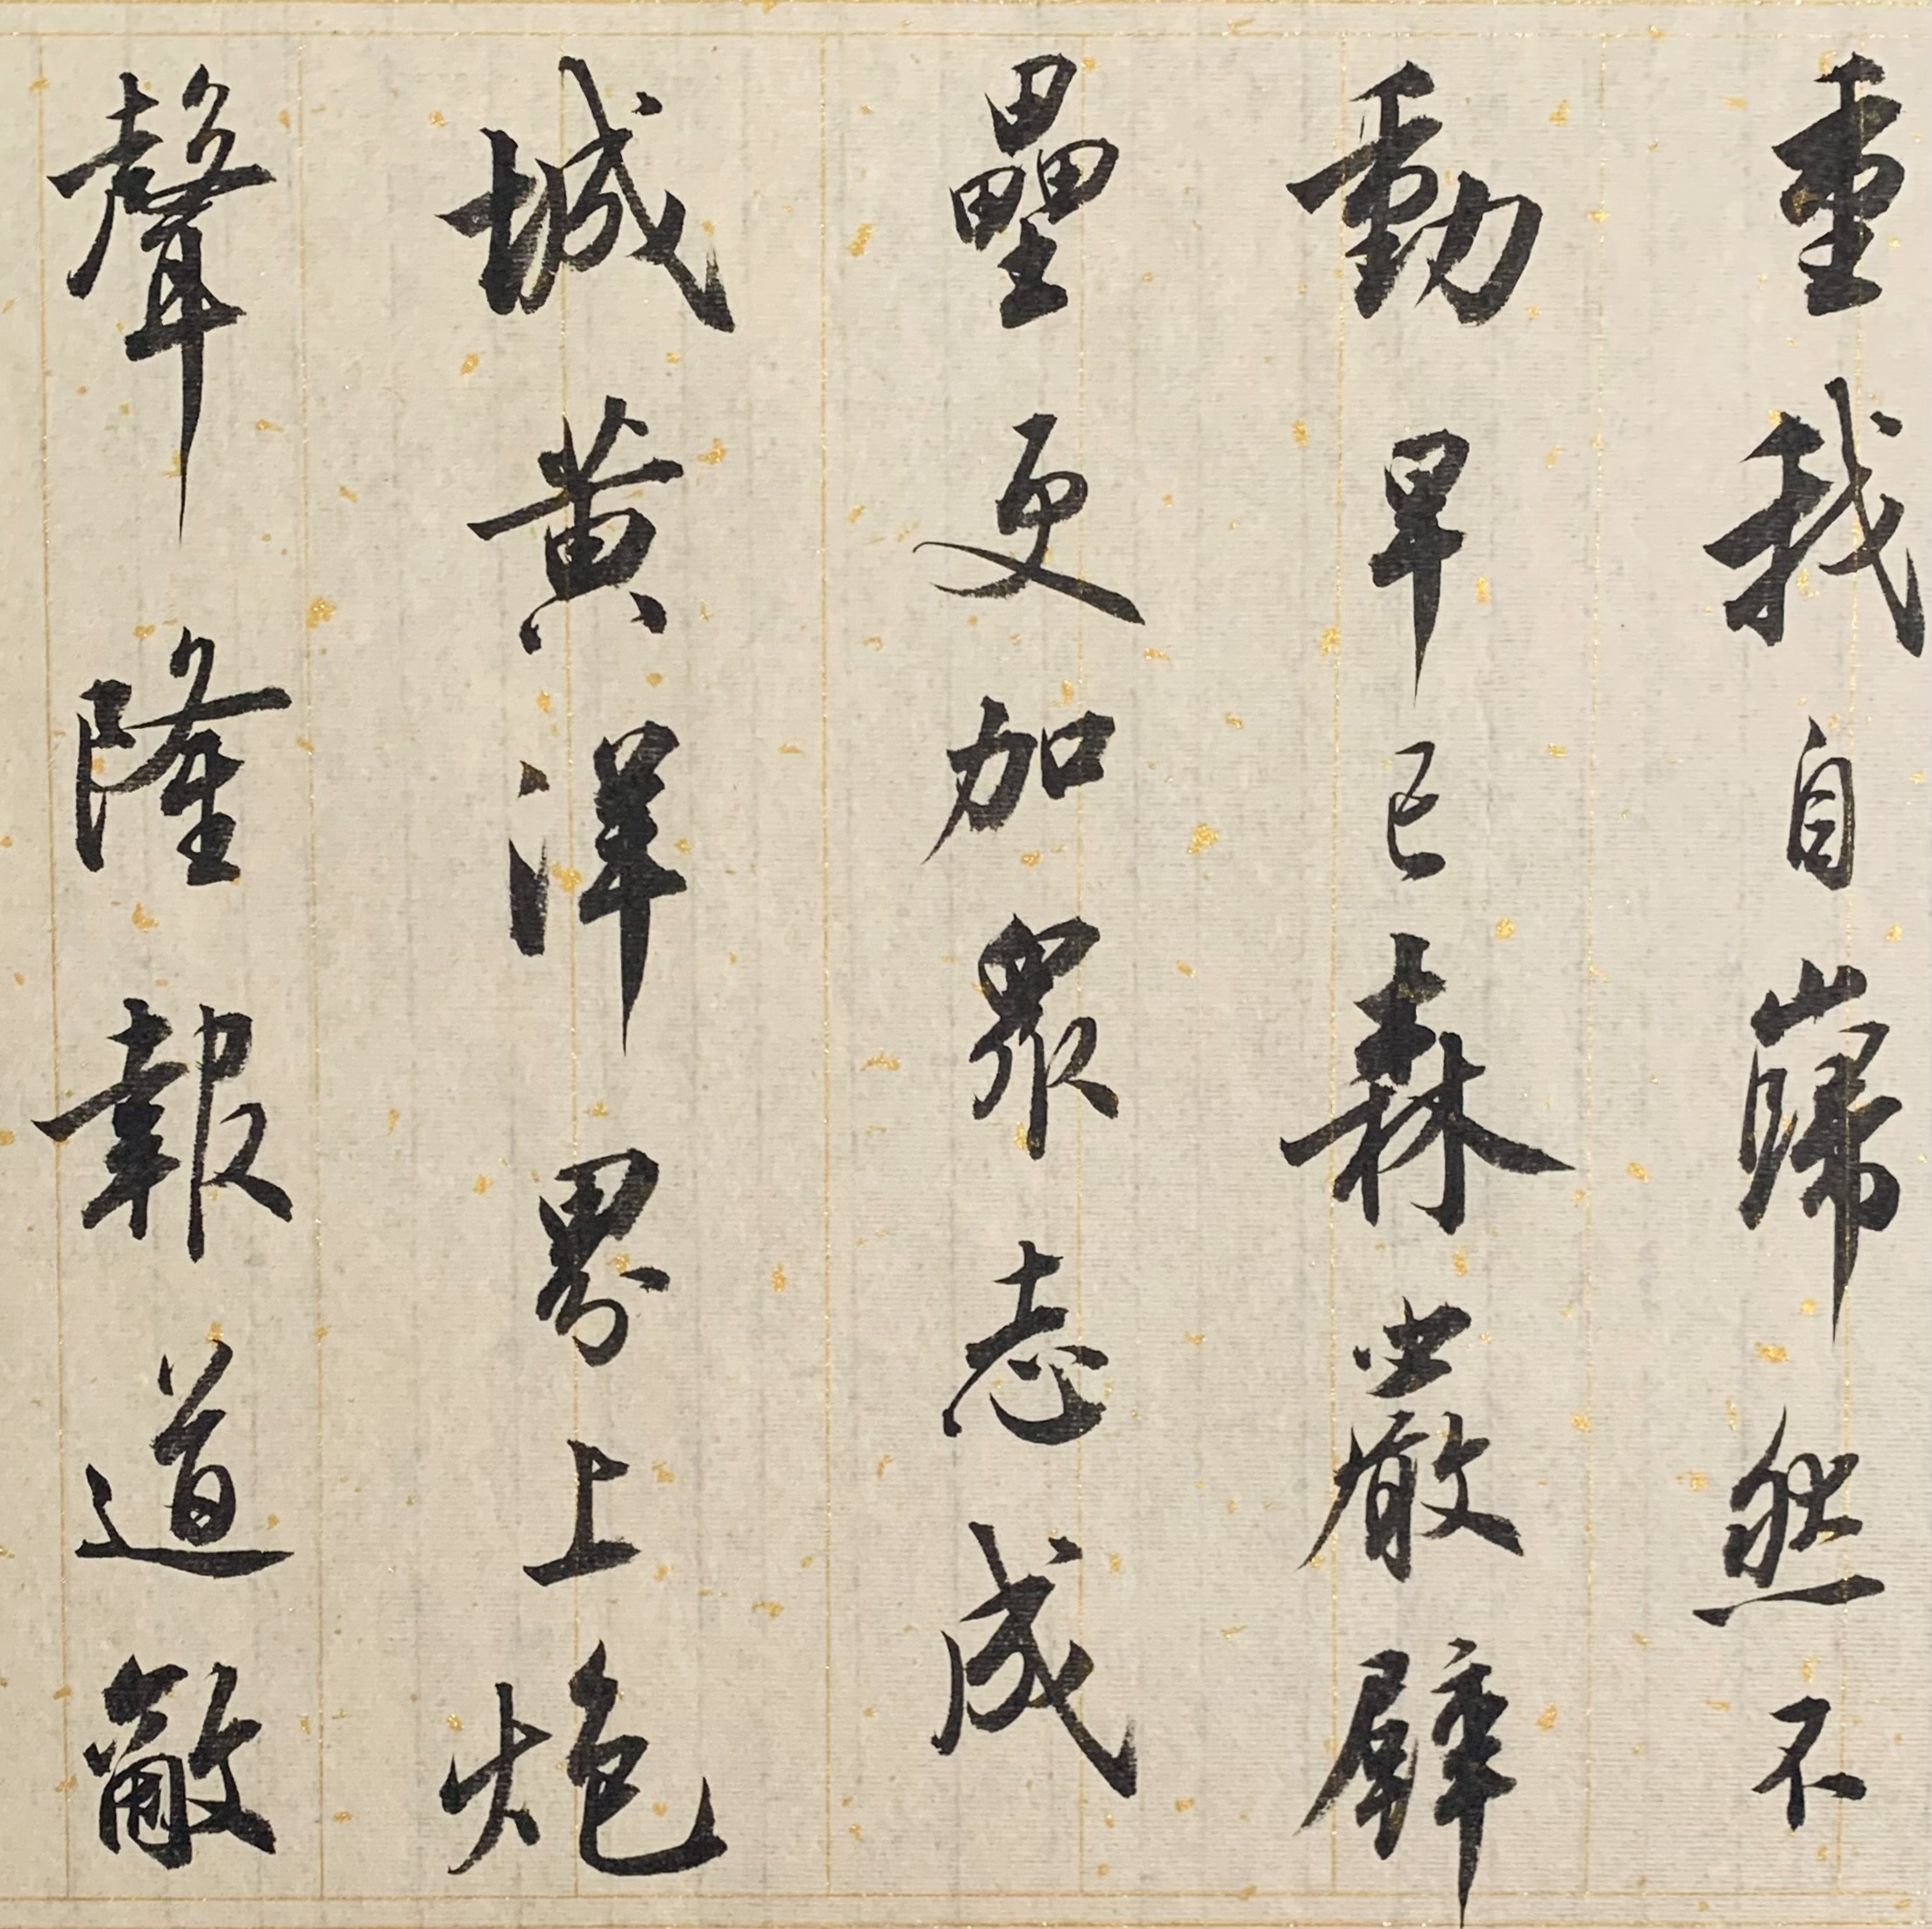 重我自巋然不
動早已森嚴壁
壘更加衆志成
城黄洋界上炮
聲隆報道敵